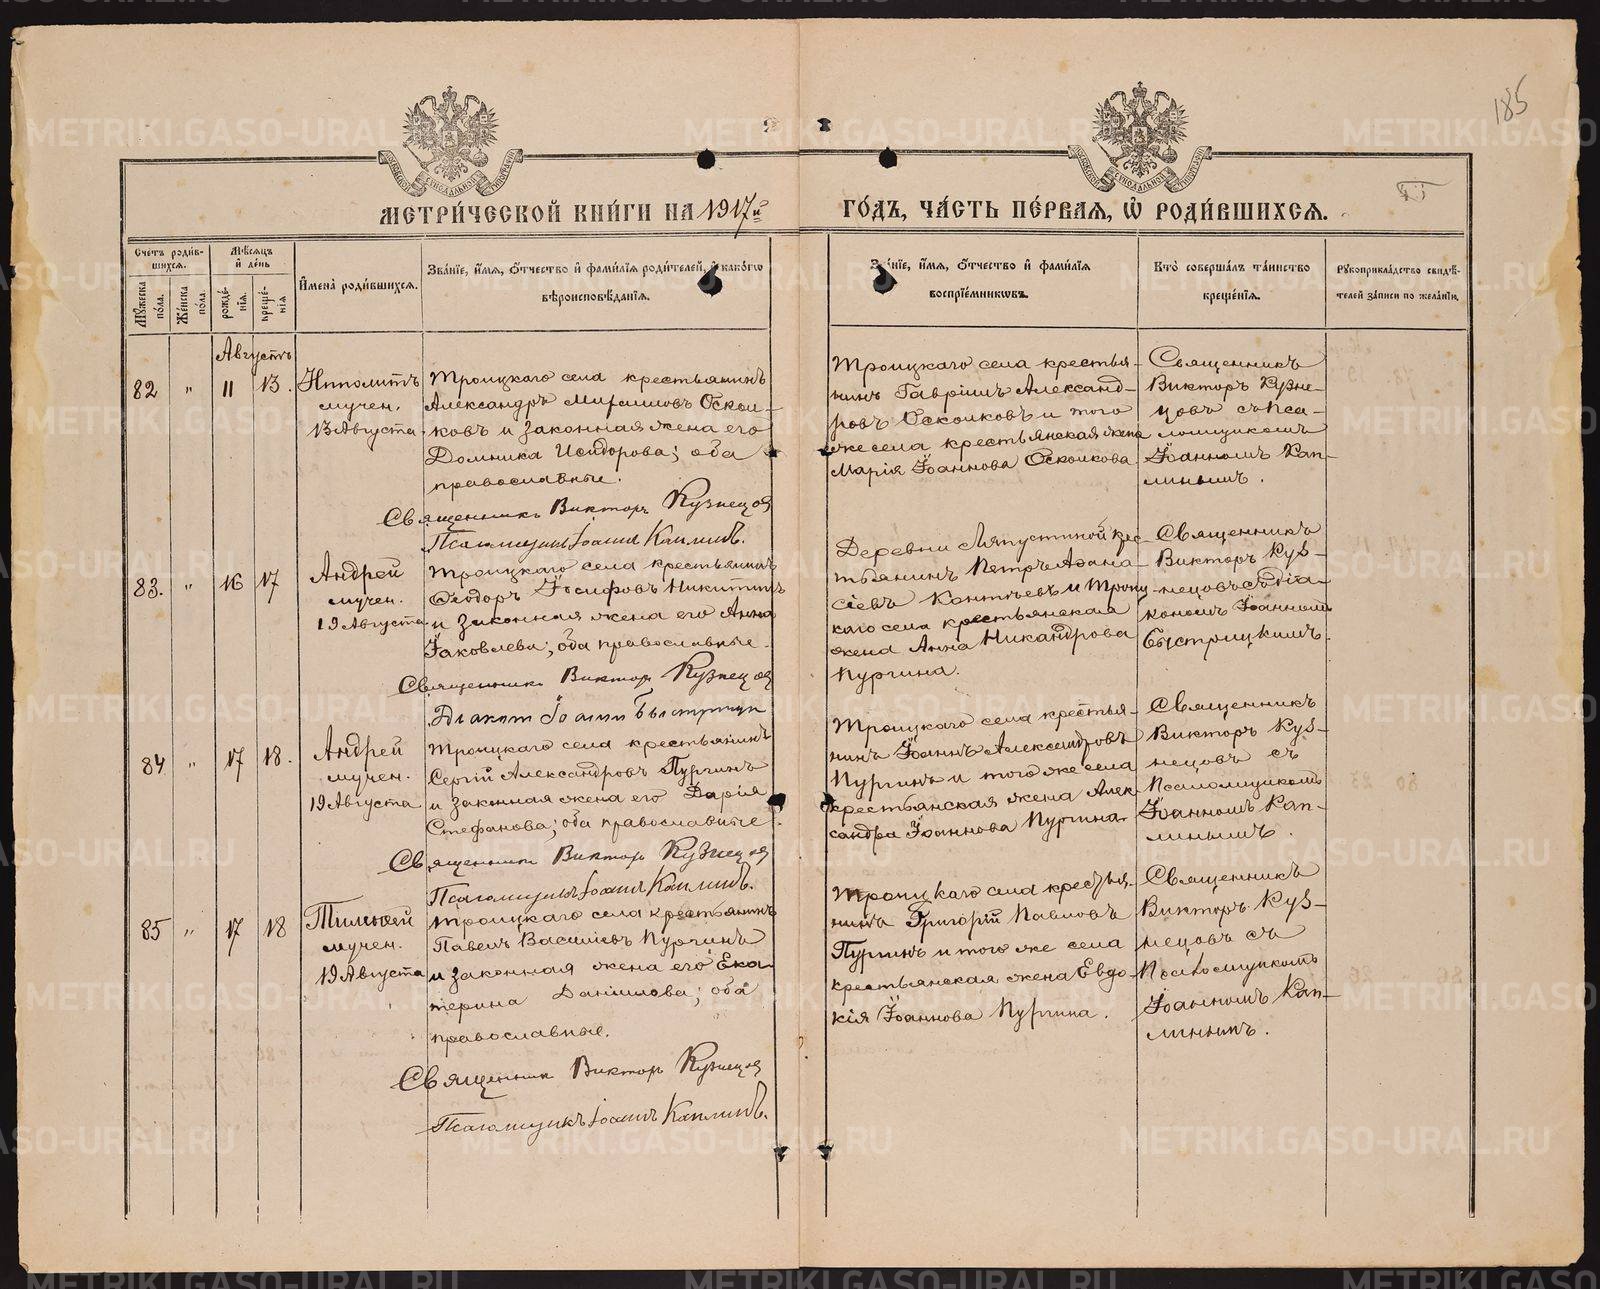 185
МЕТРИ́ЧЕСКОЙ КНИ́ГИ НА 1917й
ГО́ДЪ, ЧА́СТЬ ПЕ́РВАЯ, Ѡ РОДИ́ВШИХСЯ.
Сче́тъ роди́в-
шихся.
Мѣ́сяцъ
и҆ де́нь
И҆мена̀ роди́вшихся.
Зва́нїе, и҆́мя, ѻ҆́тчество и҆ фами́лїя роди́телей, и҆ како́гѡ
вѣроисповѣ́данїя.
Зва́нїе, и҆́мя, ѻ҆́тчество и҆ фами́лїя
воспрїе́мниковъ.
Кто̀ соверша́лъ та́инство
креще́нїя.
Рукоприкла́дство свидѣ́-
телей за́писи по жела́нїю.
Му́жеска по́ла.
Же́нска по́ла.
рожде́нїя.
креще́нїя.
Августъ
82 " 11 13.
Ипполитъ
мучен.
13 Августа
Троицкаго села крестьянинъ
Александръ Оскол-
ковъ и законная жена его
Домника Исидорова; оба
православные.
Священникъ Викторъ Кузнецов
Псаломщикъ Іоаннъ Каплинъ.
Троицкаго села крестья-
нинъ Гавріилъ Александ-
ровъ Осколковъ и того
же села крестьянская жена
Марія Іоаннова Осколкова
Священникъ
Викторъ Кузне-
цовъ съ Пса-
ломщикомъ
Іоанномъ Кап-
линымъ.
83. " 16 17
Андрей
мучен.
19 Августа
Троицкаго села крестьянинъ
Ѳеодоръ Іосифовъ Никитинъ
и законная жена его Анна
Іаковлева; оба православные.
Священникъ Виктор Кузнецов
Діакон Іоанн Быстрицк
Деревни Ляпустиной крес-
тьянинъ Петръ Аѳана-
сіевъ и Троиц-
каго села крестьянская
жена Анна Никандрова
Пургина.
Священникъ
Викторъ Куз-
нецовъ съ Діа-
кономъ Іоанномъ
Быстрицкимъ.
84 " 17 18.
Андрей
мучен.
19 Августа
Троицкаго села крестьянинъ
Сергій Александровъ Пургинъ
и законная жена его Дарія
Стефанова; оба православные.
Священникъ Викторъ Кузнецов
Псаломщикъ Іоаннъ Каплинъ.
Троицкаго села крестья-
нинъ Іоаннъ Александровъ
Пургинъ и того же села
крестьянская жена Алек-
сандра Іоаннова Пургина
Священникъ
Викторъ Куз-
нецовъ съ
Псаломщикомъ
Іоанномъ Кап-
линымъ.
85 " 17 18
Тимоѳей
мучен.
19 Августа
Троицкаго села крестьянинъ
Павелъ Василіевъ Пургинъ
и законная жена его Ека-
терина Даніилова; оба
православные.
Священник Викторъ Кузнецов
Псаломщикъ Іоаннъ Каплинъ.
Троицкаго села крестья-
нинъ Григорій Павловъ
Пургинъ и того же села
крестьянская жена Евдо-
кія Іоаннова Пургина.
Священникъ
Викторъ Куз-
нецовъ съ
Псаломщикомъ
Іоанномъ Кап-
линымъ.
METRIKI.GASO-URAL.RU